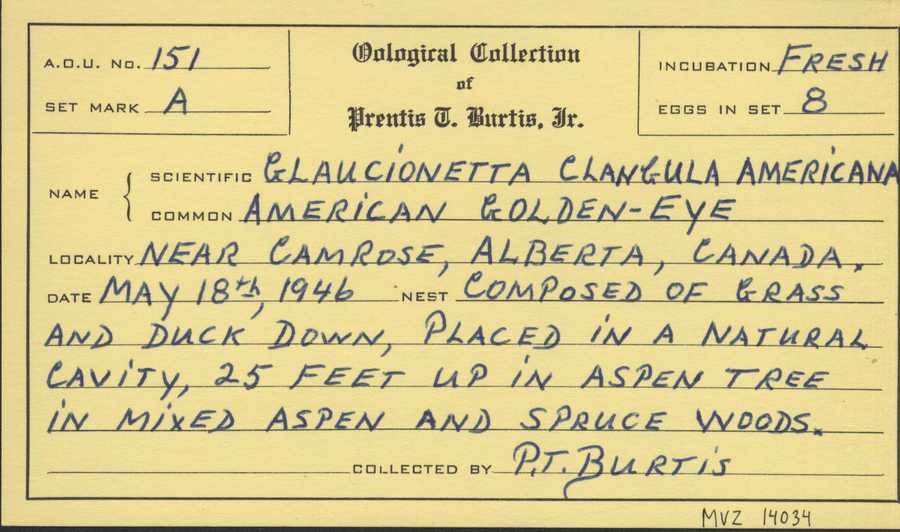 A.O.U. No. 151
SET MARK A
Oological Collection
of
Prentis T. Burtis, Jr.
INCUBATION FRESH
EGGS IN SET 8
NAME
SCIENTIFIC GLAUCIONETTA CLANGULA AMERICANA
COMMON AMERICAN GOLDEN-EYE
LOCALITY NEAR CAMROSE, ALBERTA, CANADA.
DATE MAY 18th, 1946 NEST COMPOSED OF GRASS
AND DUCK DOWN, PLACED IN A NATURAL
CAVITY, 25 FEET UP IN ASPEN TREE
IN MIXED ASPEN AND SPRUCE WOODS.
COLLECTED BY P.T. BURTIS
MVZ 14034